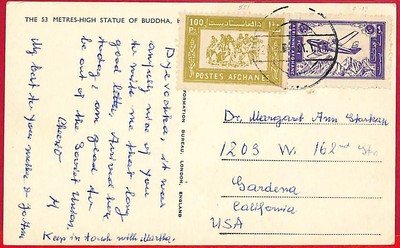 THE 53 METRES-HIGH STATUE OF BUDDHA,
it was
awfully nice of you
to write me that long
good letter. Arrived here
today; am glad to
be out of the Soviet Union.
M
Keep in touch with Martha.
My best to your mother & father
FORMATION BUREAU, LONDON, ENGLAND
100
POSTES AFGHANES
Dr. Margaret Ann
1203 W. 162nd St.
Gardena
California
USA